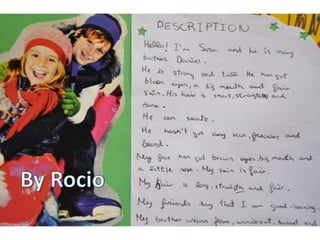 DESCRIPTION
Hello! I'm Sara and he is my
brother Daniel.
He is strong and tall. He has got
eyes, a big mouth and fair
skin. His hair is short, straight and
dark.
He can skate.
He hasn't got any scar, freckles and
beard.
My face has got brown eyes, big mouth and
a little nose. My skin is fair.
My hair is long, straight and fair.
My friends say that I am good-looking.
My brother wears jeans, and
By Rocio